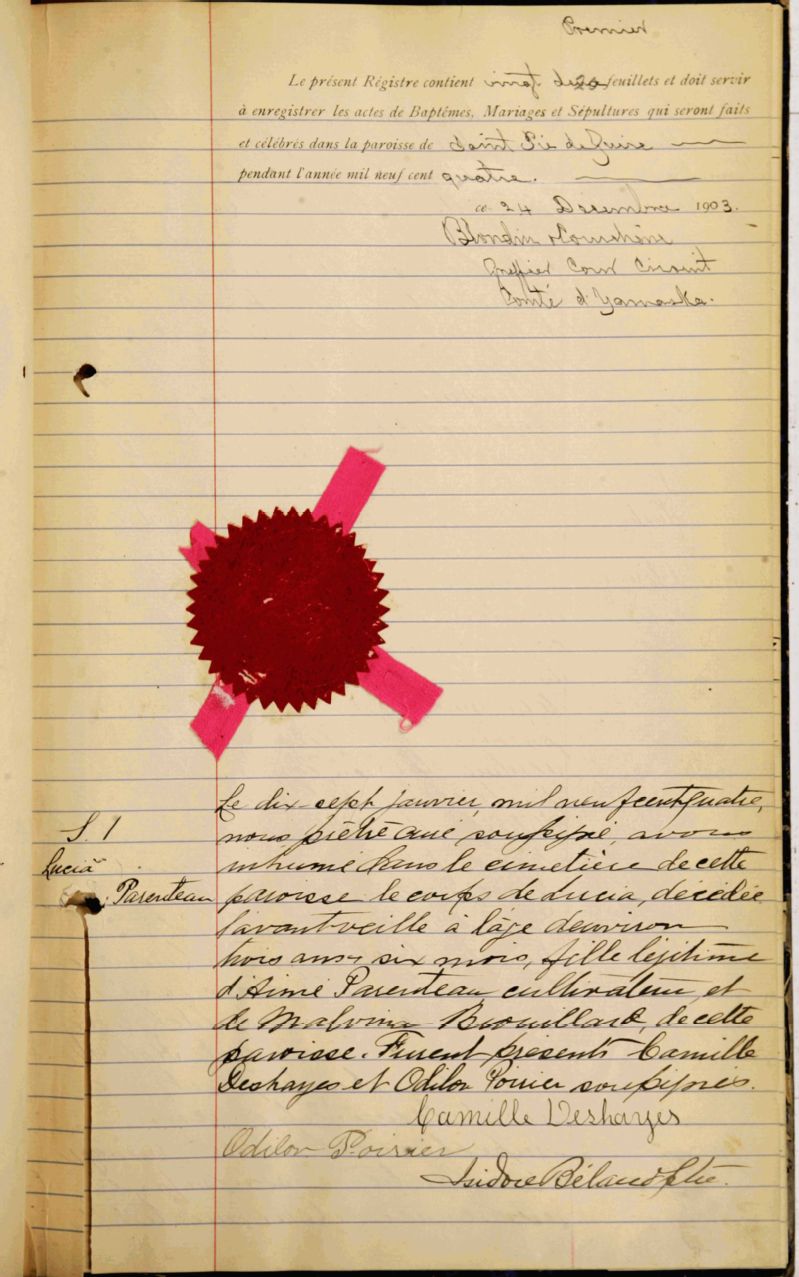 Premier
Le présent Régistre contient vingt feuillets et doit servir
à enregistrer les actes de Baptêmes, Mariages et Sépultures qui seront faits
et célébrés dans la paroisse de Saint Pie de Guire
pendant l'année mil neuf cent quatre.
ce 24 Décembre 1903.
Blondin
Greffier Cour Circuit
Comté d'Yamaska.
Le dix-sept janvier, mil neuf cent quatre,
S. 1
nous prêtre curé soussigné, avons
Lucia
inhumé dans le cimetière de cette
Parenteau
paroisse le corps de Lucia, décédée
l'avant veille à l'âge d'environ
trois ans six mois, fille légitime
d'Aimé Parenteau cultivateur, et
de Malvina Brouillard, de cette
paroisse. Furent présents Camille
Deshayes et Odilon Poirier soussignés.
Camille Deshayes
Odilon Poirier
Isidore Béland Ptre.